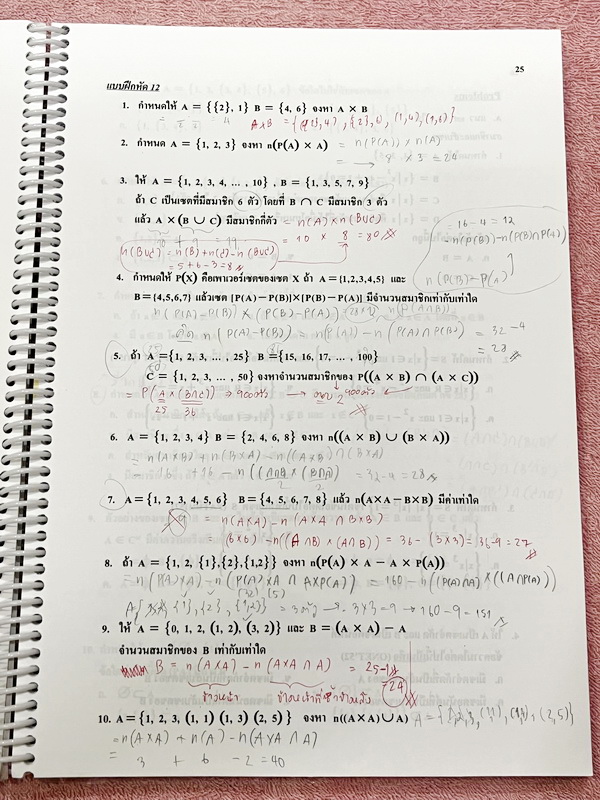 25
แบบฝึกหัด 12
1. กำหนดให้ A = {{2}, 1} B = {4, 6} จงหา A × B
= = 4 A×B = {({2},4), ({2},6), (1,4), (1,6)}
2. กำหนด A = {1, 2, 3} จงหา n(P(A) × A) = n(P(A)) × n(A)
= → 8 × 3 = 24
3. ให้ A = {1, 2, 3, 4, ... , 10} , B = {1, 3, 5, 7, 9}
ถ้า C เป็นเซตที่มีสมาชิก 6 ตัว โดยที่ B ∩ C มีสมาชิก 3 ตัว
แล้ว A × (B ∪ C) มีสมาชิกกี่ตัว = n(A) × n(B∪C)
= 10 × 8 = 80
n(B∪C) = n(B) + n(C) - n(B∪C)
= 5 + 6 - 3 = 8
16 - 4 = 12
= n(P(B)) - n(P(B)∩P(A))
n(P(B) - P(A))
4. กำหนดให้ P(X) คือเพาเวอร์เซตของเซต X ถ้า A = {1,2,3,4,5} และ
B = {4,5,6,7} แล้วเซต [P(A) − P(B)]×[P(B) − P(A)] มีจำนวนสมาชิกเท่ากับเท่าใด
n(P(A) - P(B)) × (P(B) - P(A))
คิด n(P(A) - P(B)) = n(P(A)) - n(P(A)∩P(B)) = 32 - 4
= 28
5. ถ้า A = {1, 2, 3, ... , 25} B = {15, 16, 17, ... , 100}
C = {1, 2, 3, ... , 50} จงหาจำนวนสมาชิกของ P((A × B) ∩ (A × C))
= P(A × (B∩C)) → 900 ตัว → ตอบ 2^900 ตัว
25 36
6. A = {1, 2, 3, 4} B = {2, 4, 6, 8} จงหา n((A × B) ∪ (B × A))
= n(A×B) + n(B×A) - n((A×B)∩(B×A))
= 16 + 16 - n((A∩B) × (B∩A)) = 32 - 4 = 28
7. A = {1, 2, 3, 4, 5, 6} B = {4, 5, 6, 7, 8} แล้ว n(A×A − B×B) มีค่าเท่าใด
= n(A×A) - n(A×A ∩ B×B)
= (6×6) - n((A∩B) × (A∩B)) = 36 - (3×3) = 36 - 9 = 27
8. ถ้า A = {1, 2, {1},{2},{1,2}} จงหา n(P(A) × A − A × P(A))
= n(P(A)×A) - n(P(A)×A ∩ A×P(A)) = 160 - n((P(A)∩A) × (A∩P(A)))
(32) (5)
{1}, {2}, {1,2}} = 3 ตัว → 3×3 = 9 → 160 - 9 = 151
9. ให้ A = {0, 1, 2, (1, 2), (3, 2)} และ B = (A × A) − A
จำนวนสมาชิกของ B เท่ากับเท่าใด
B = n(A×A) - n(A×A ∩ A) = 25 - 1
24
10. A = {1, 2, 3, (1, 1) (1, 3) (2, 5)} จงหา n((A×A)∪ A) A = {1,2,3,(1,1),(1,3),(2,5)}
= n(A×A) + n(A) - n(A×A ∩ A)
= 3 + 6 - 2 = 40